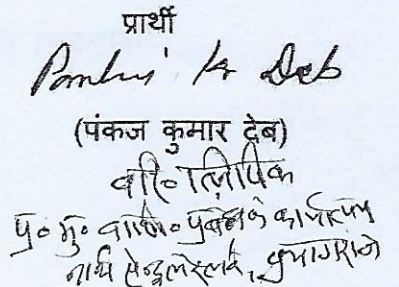 प्रार्थी
Pankaj Kr Deb
(पंकज कुमार देब)
वरि० लिपिक
प्र० मु० वाणि० प्रबंधक कार्यालय
नार्थ सेन्ट्रल रेलवे, प्रयागराज